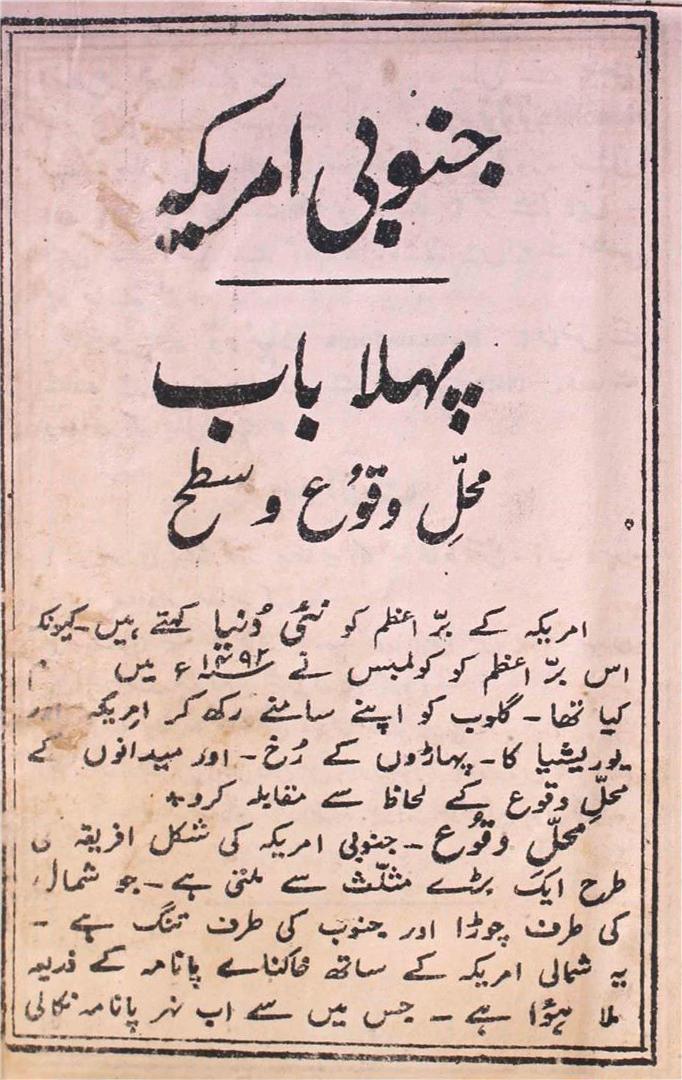 جنوبی امریکہ
پہلا باب
محلِّ وقُوع و سطح
امریکہ کے برِّ اعظم کو نئی دُنیا کہتے ہیں۔ کیونکہ
اس برِّ اعظم کو کولمبس نے ۱۴۹۲ء میں
کیا تھا۔ گلوب کو اپنے سامنے رکھ کر امریکہ اور
یوریشیا کا۔ پہاڑوں کے رُخ۔ اور میدانوں کے
محلِّ وقوع کے لحاظ سے مقابلہ کرو*
محلِّ وقُوع۔ جنوبی امریکہ کی شکل افریقہ کی
طرح ایک بڑے مثلّث سے ملتی ہے۔ جو شمال
کی طرف چوڑا اور جنوب کی طرف تنگ ہے۔
یہ شمالی امریکہ کے ساتھ خاکناے پانامہ کے ذریعہ
ملا ہؤا ہے۔ جس میں سے اب نہر پانامہ نکالی